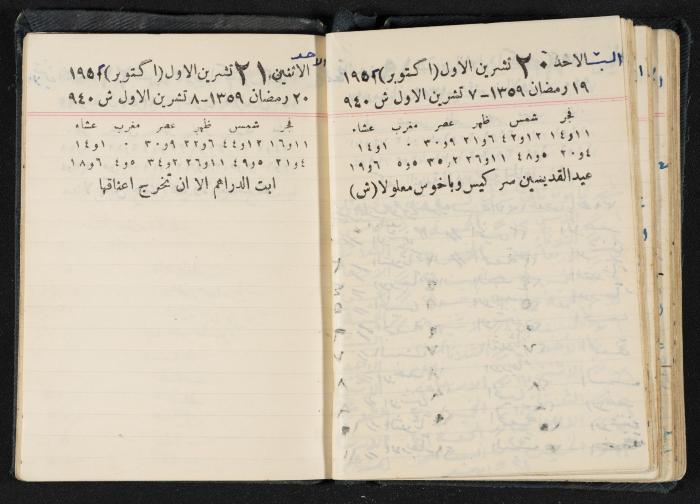 السبت الاحد ٢٠ تشرين الاول (اكتوبر)
١٩ رمضان ١٣٥٩-٧ تشرين الاول ش ٩٤٠
فجر شمس ظهر عصر مغرب عشاء
١١و١٤ ١٢و٤٢ ٦و٢١ ٩و٣٠ ٠ ١و١٤
٤و٢٠ ٥و٤٨ ١١و٢٦ ٢و٣٥ ٥و٥ ٦و١٩
عيد القديسين سركيس وباخوس معلولا (ش)
الاحد
الاثنين ٢١ تشرين الاول (اكتوبر)
٢٠ رمضان ١٣٥٩-٨ تشرين الاول ش ٩٤٠
فجر شمس ظهر عصر مغرب عشاء
١١و١٦ ١٢و٤٤ ٦و٢٢ ٩و٣٠ ٠ ١و١٤
٤و٢١ ٥و٤٩ ١١و٢٦ ٢و٣٤ ٥و٤ ٦و١٨
ابت الدراهم الا ان تخرج اعناقها